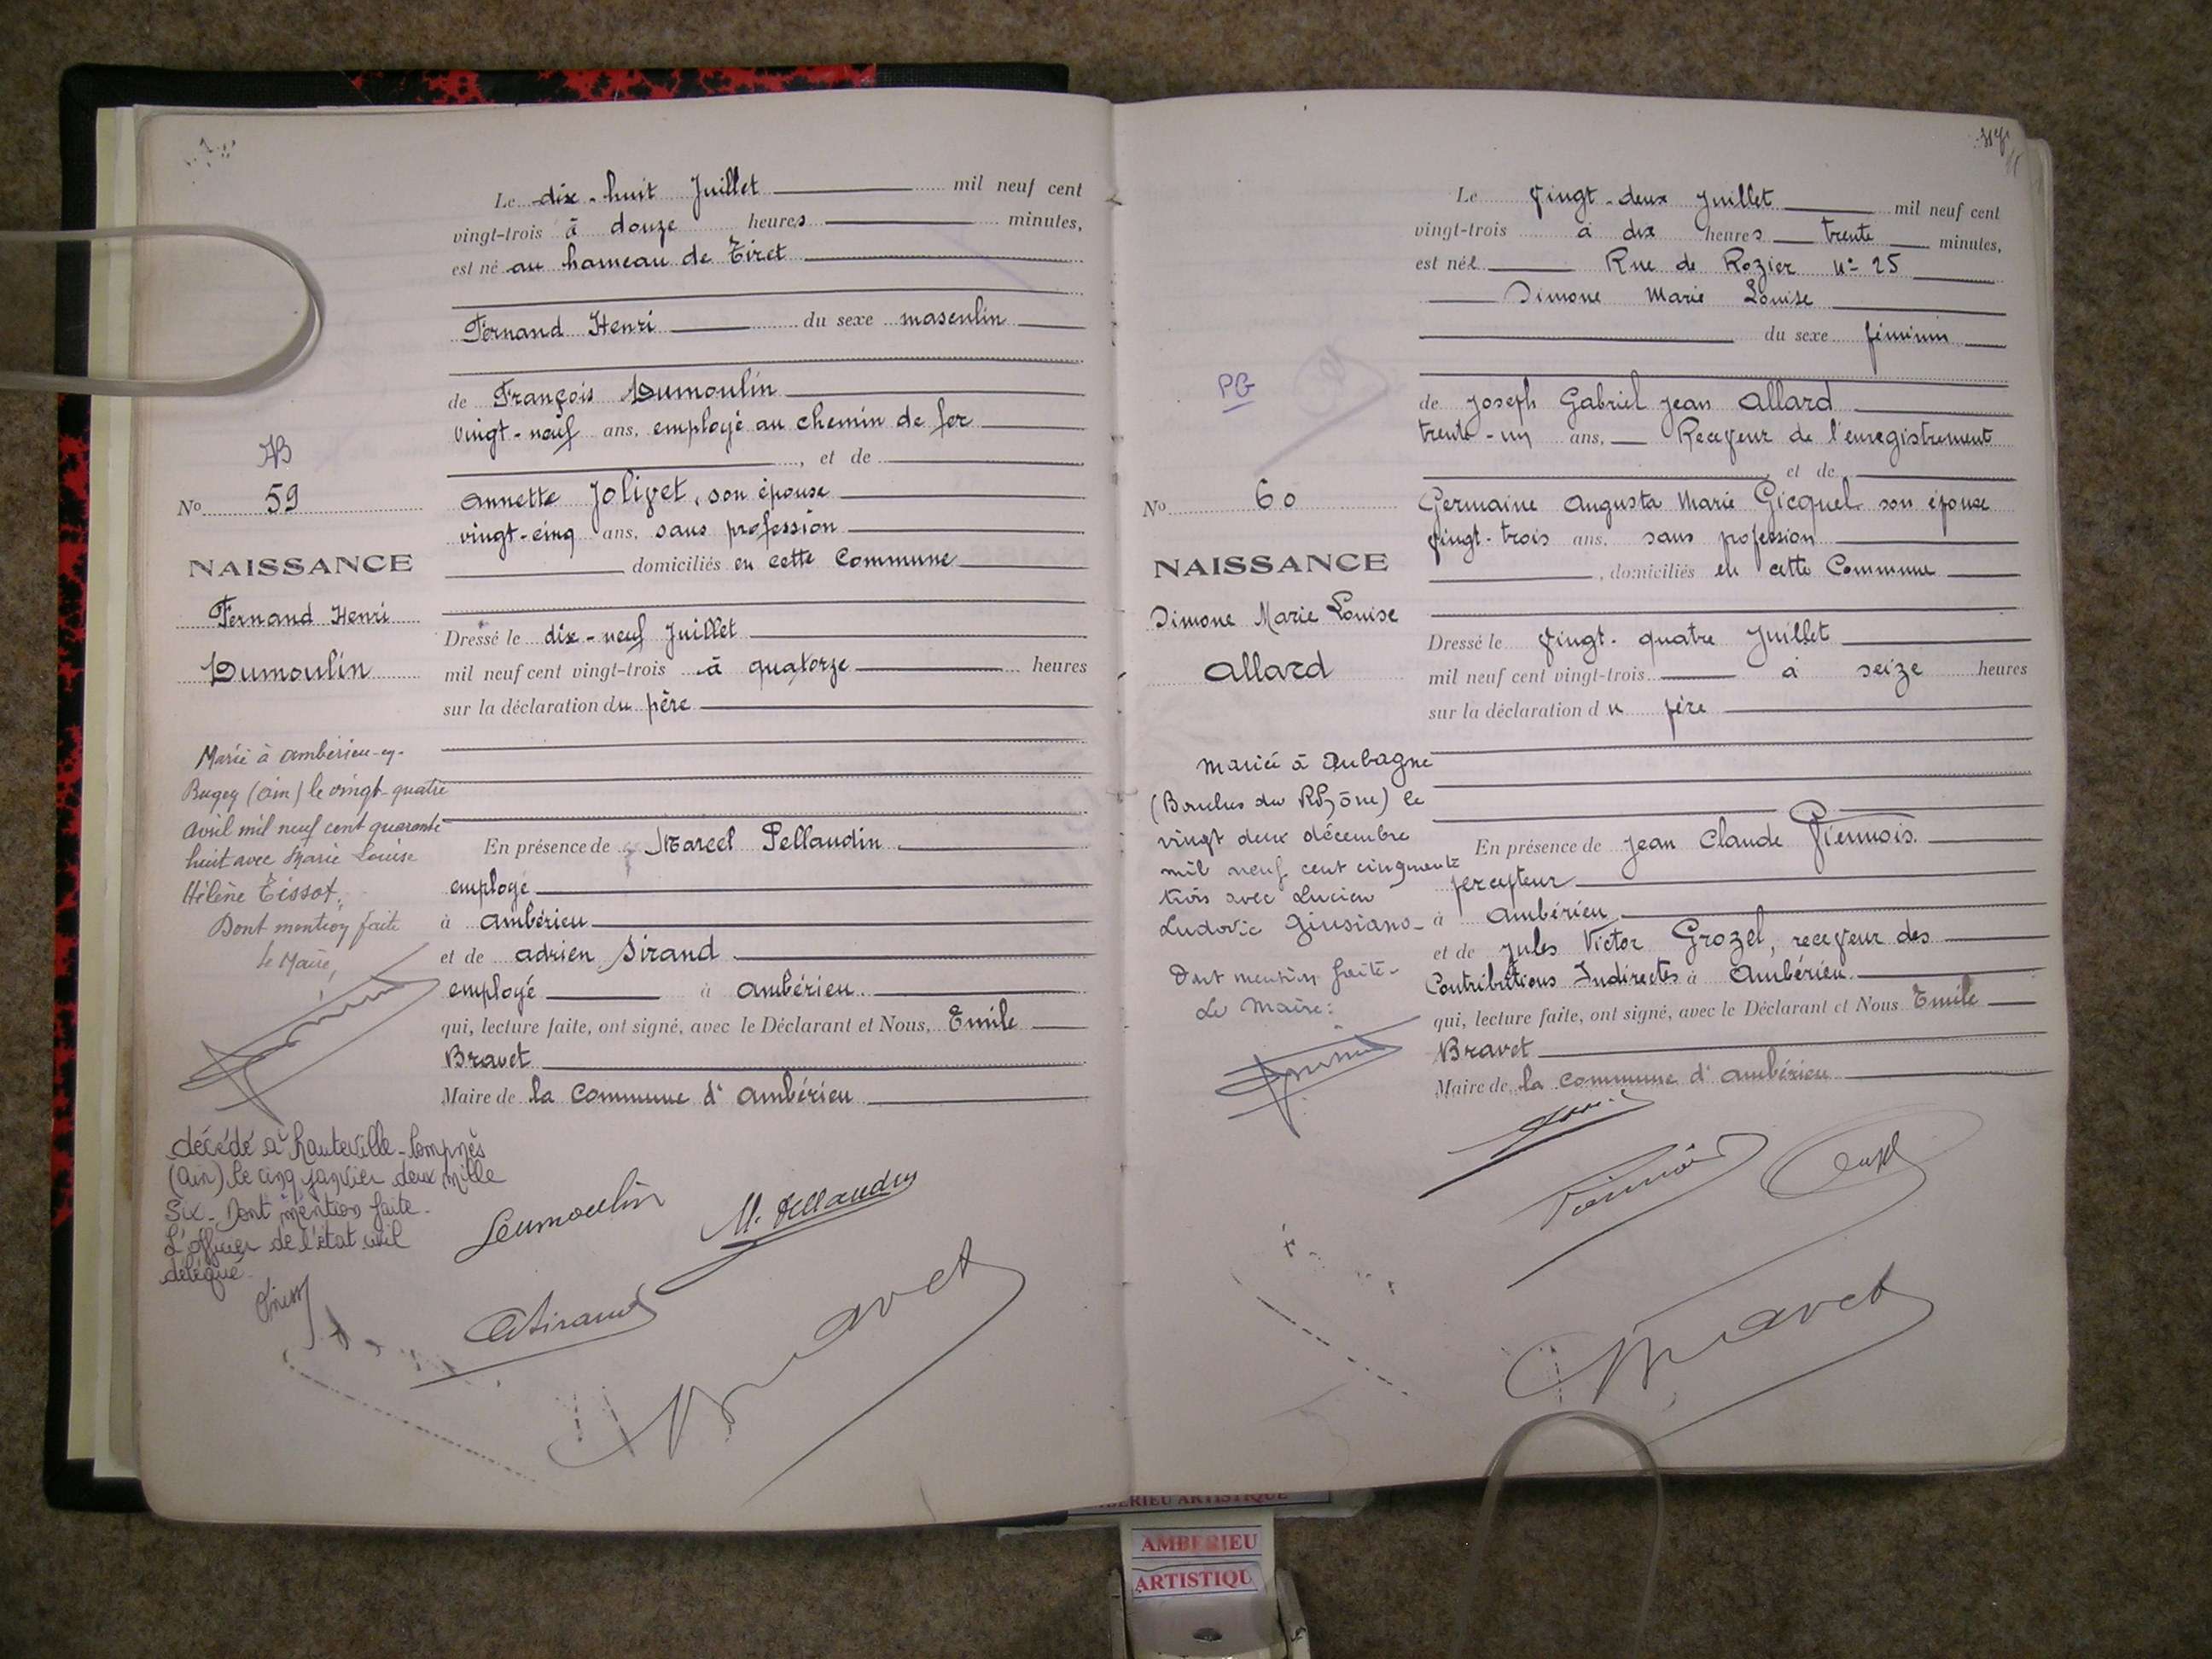 Le dix-huit Juillet mil neuf cent
vingt-trois à douze heures minutes,
est né au hameau de Tiret
Fernand Henri du sexe masculin
de François Dumoulin
vingt-neuf ans, employé au chemin de fer
, et de
Annette Jolivet, son épouse
vingt-cinq ans, sans profession
domiciliés en cette Commune
Dressé le dix-neuf Juillet
mil neuf cent vingt-trois à quatorze heures
sur la déclaration du père
En présence de Marcel Pellaudin
employé
à Ambérieu
et de Adrien Sirand
employé à Ambérieu
qui, lecture faite, ont signé, avec le Déclarant et Nous, Emile
Bravet
Maire de la Commune d'Ambérieu
AB
No 59
NAISSANCE
Fernand Henri
Dumoulin
Marié à Ambérieu-en-
Bugey (Ain) le vingt-quatre
avril mil neuf cent quarante
huit avec Marie Louise
Hélène Tissot.
Dont mention faite
Le Maire,
décédé à Hauteville-Lompnès
(Ain) le cinq janvier deux mille
six. Dont mention faite.
L'officier de l'état civil
délégué.
Dumoulin
M. Pellaudin
A Sirand
Bravet
Le vingt-deux Juillet mil neuf cent
vingt-trois à dix heures trente minutes,
est née Rue de Rozier n° 25
Simone Marie Louise
du sexe féminin
de Joseph Gabriel Jean Allard
trente-un ans, Receveur de l'enregistrement
, et de
Germaine Augusta Marie Gicquel son épouse
vingt-trois ans, sans profession
, domiciliés en cette Commune
Dressé le vingt-quatre Juillet
mil neuf cent vingt-trois à seize heures
sur la déclaration du père
En présence de Jean Claude Viennois.
percepteur
à Ambérieu
et de Jules Victor Grozel, receveur des
Contributions Indirectes à Ambérieu.
qui, lecture faite, ont signé, avec le Déclarant et Nous Emile
Bravet
Maire de la Commune d'Ambérieu
PG
No 60
NAISSANCE
Simone Marie Louise
Allard
Mariée à Aubagne
(Bouches du Rhône) le
vingt deux décembre
mil neuf cent cinquante
trois avec Lucien
Ludovic Giusiano-
Dont mention faite-
Le Maire:
Viennois
Bravet
AMBERIEU ARTISTIQUE
AMBERIEU
ARTISTIQU